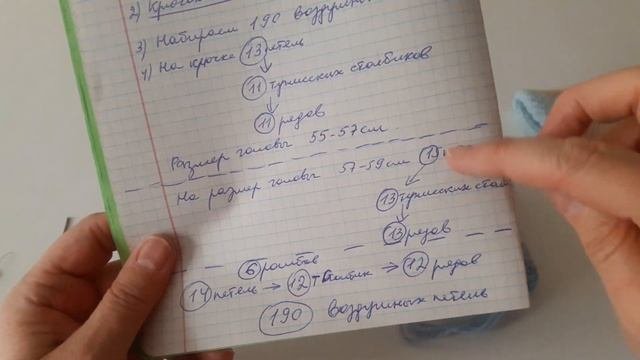 2) Крючок
3) Набираем 190 воздушн
4) На крючке 13 петель
11 тунисских столбиков
11 рядов
Размер головы 55-57см
На размер головы 57-59см 15
13 тунисских стол
13 рядов
6 ромбов
14 петель → 12 → 12 рядов
190 воздушных петель